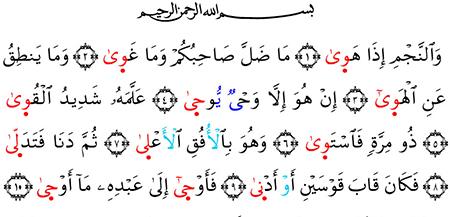 بسم الله الرحمن الرحيم
وَٱلنَّجْمِ إِذَا هَوىٰ ۝١ مَا ضَلَّ صَاحِبُكُمْ وَمَا غَوىٰ ۝٢ وَمَا يَنطِقُ
عَنِ ٱلْهَوىٰٓ ۝٣ إِنْ هُوَ إِلَّا وَحْىٌ يُوحىٰ ۝٤ عَلَّمَهُۥ شَدِيدُ ٱلْقُوىٰ
۝٥ ذُو مِرَّةٍ فَٱسْتَوىٰ ۝٦ وَهُوَ بِٱلْأُفُقِ ٱلْأَعْلىٰ ۝٧ ثُمَّ دَنَا فَتَدَلّىٰ
۝٨ فَكَانَ قَابَ قَوْسَيْنِ أَوْ أَدْنىٰ ۝٩ فَأَوْحىٰٓ إِلَىٰ عَبْدِهِۦ مَآ أَوْحىٰ ۝١٠